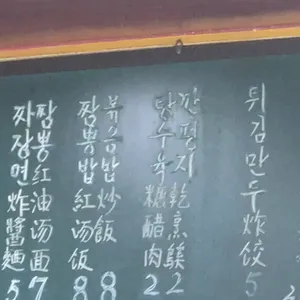 짜장면炸醬麵5
짬뽕紅油汤面7
짬뽕밥紅汤饭8
볶음밥炒飯8
탕수육糖醋肉2
깐평지乾烹鷄2
튀김만두炸饺5